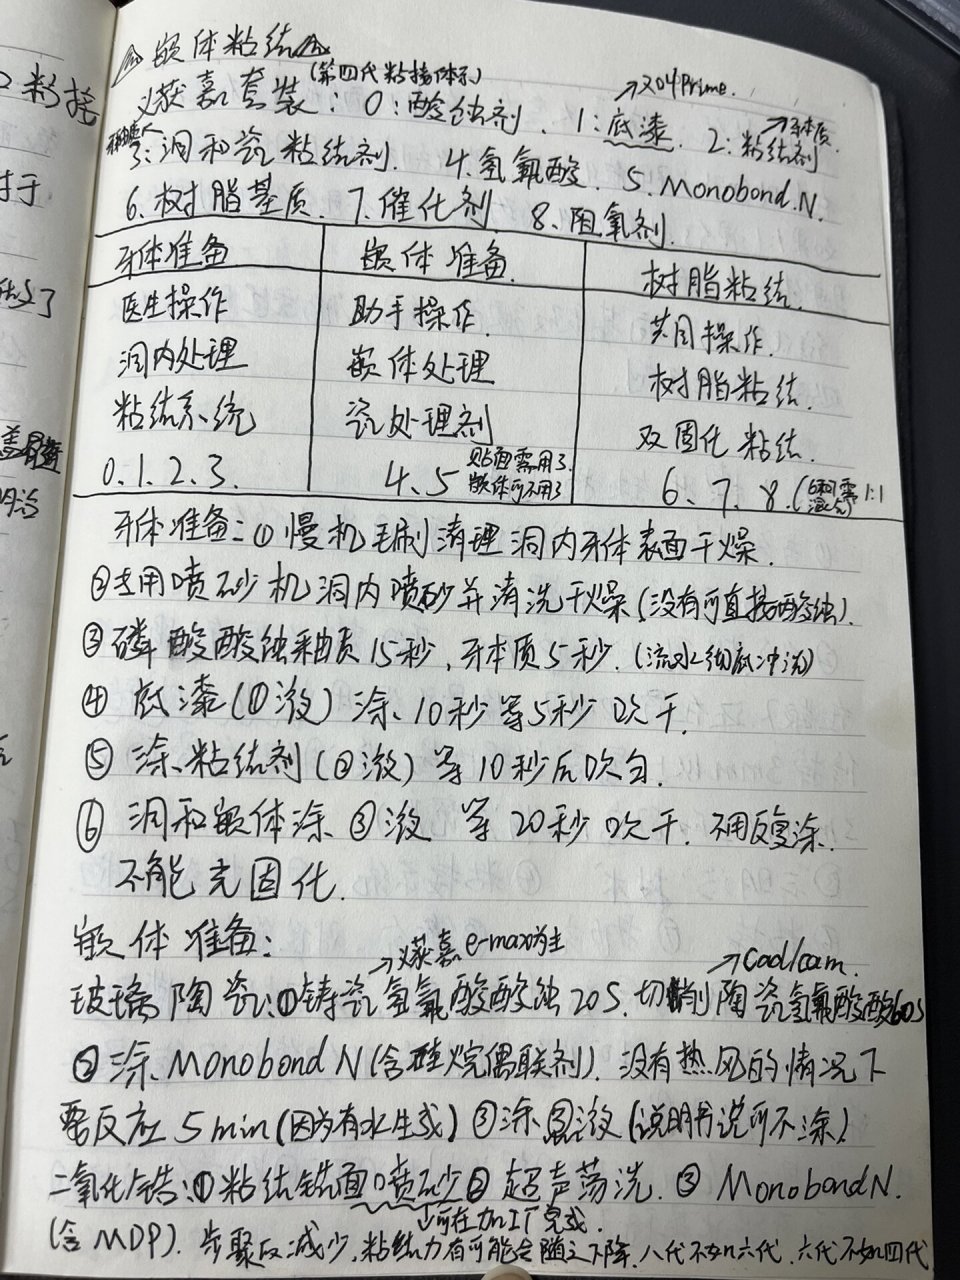 嵌体粘结
(第四代粘接体系)
义获嘉套装: 0:酸蚀剂. 1:底漆. 2:粘结剂
→204Prime.
→牙本质.
3:洞和瓷粘结剂. 4.氢氟酸. 5.Monobond.N.
6.树脂基质. 7.催化剂. 8.阻氧剂.
牙体准备 嵌体准备. 树脂粘结.
医生操作 助手操作. 共同操作.
洞内处理 嵌体处理 树脂粘结.
粘结系统 瓷处理剂 双固化粘结.
0.1.2.3. 4、5 贴面需用3. 嵌体可不用3 6、7、8.(6和7需混匀1:1
牙体准备:①慢机毛刷清理洞内牙体表面干燥.
②专用喷砂机洞内喷砂并清洗干燥(没有可直接酸蚀).
③磷酸酸蚀釉质15秒,牙本质5秒.(流水彻底冲洗)
④底漆(①液)涂、10秒等5秒吹干.
⑤涂粘结剂(②液)等10秒后吹匀.
⑥洞和嵌体涂③液等20秒吹干.不用反复涂.
不能光固化.
嵌体准备:
→义获嘉e-max为主
→Cad/cam.
玻璃陶瓷:①铸瓷氢氟酸酸蚀20S.切削陶瓷氢氟酸酸60S
②涂Monobond N(含硅烷偶联剂).没有热风的情况下
要反应5min(因为有水生成)③涂③液(说明书说可不涂)
二氧化锆:①粘结锆面喷砂②超声荡洗.③MonobondN.
↓可在加工厂完成.
(含MDP).步骤反减少,粘结力有可能会随之下降.八代不如六代.六代不如四代